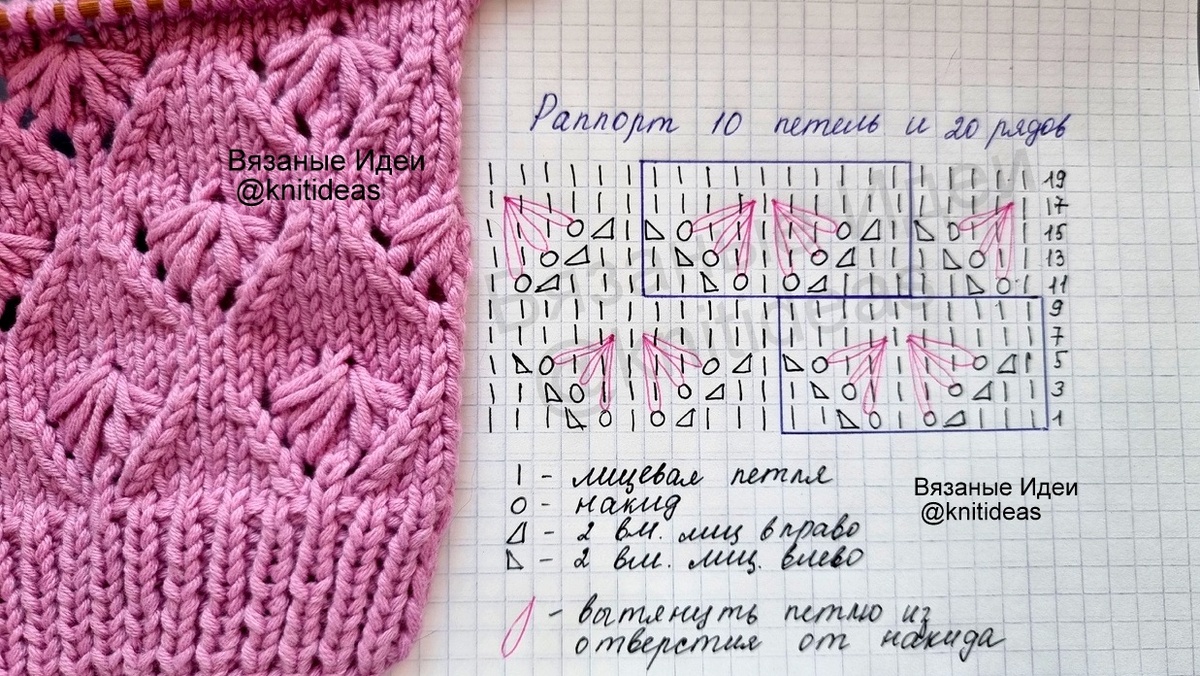 Вязаные Идеи
@knitideas
Раппорт 10 петель и 20 рядов
19
17
15
13
11
9
7
5
3
1
Вязаные Идеи
@knitideas
| - лицевая петля
O - накид
- 2 вм. лиц вправо
- 2 вм. лиц. влево
- вытянуть петлю из
отверстия от накида
Вязаные Идеи
@knitideas